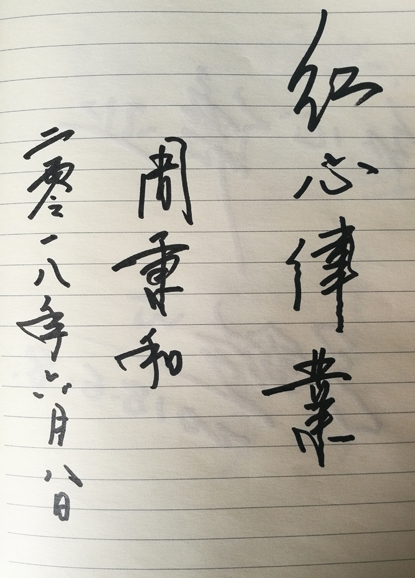 红心律業
周重和
二零一八年六月八日